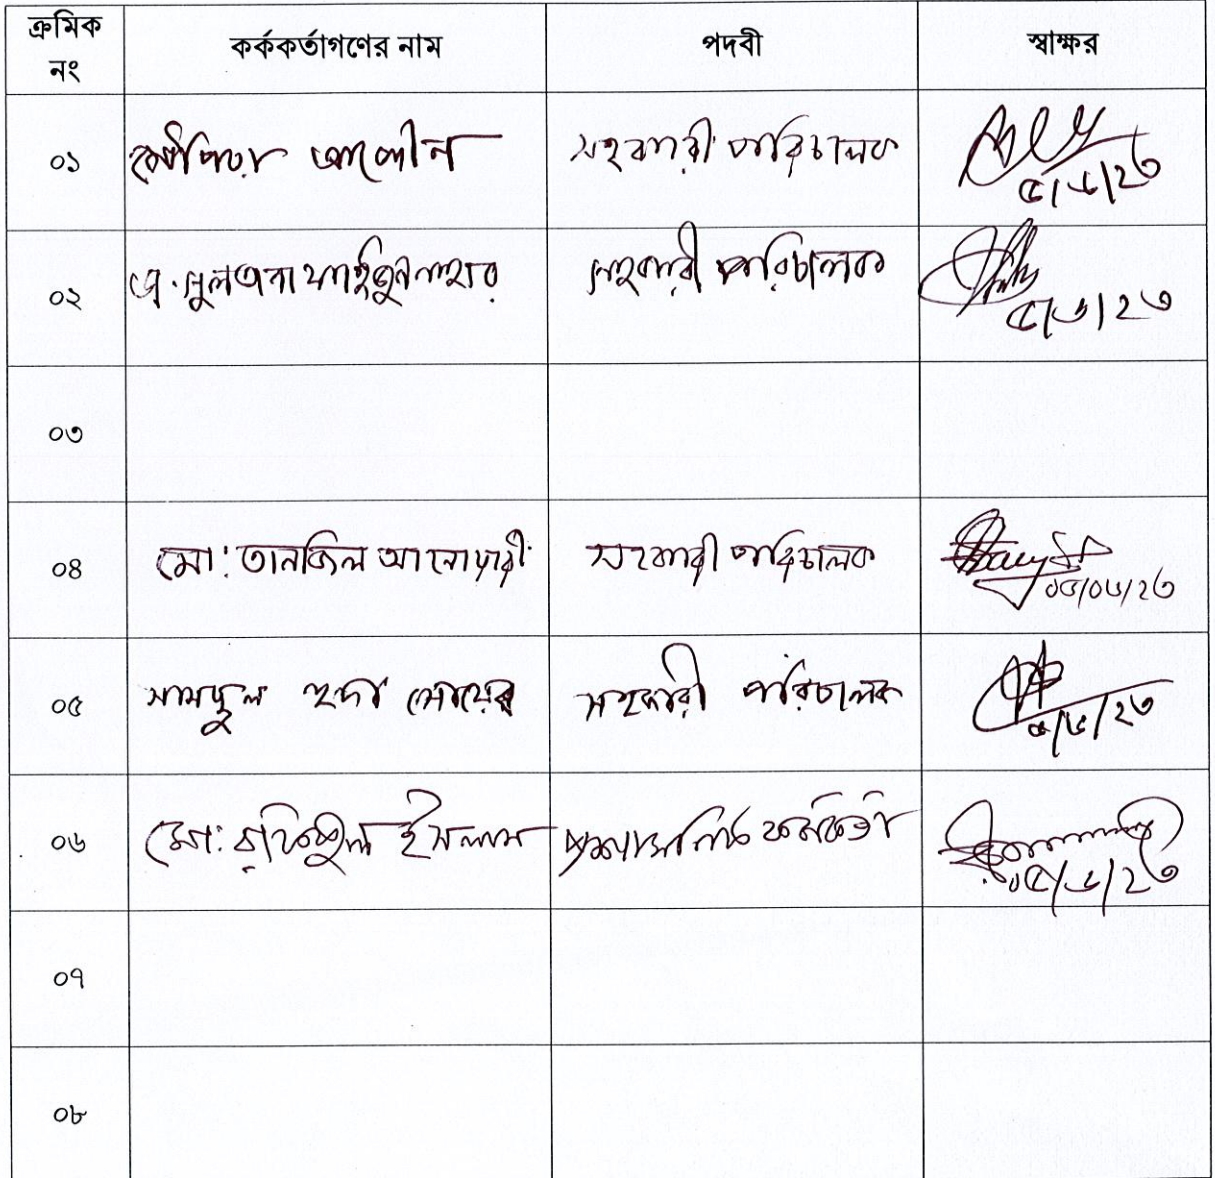 ক্রমিক নং কর্ককর্তাগণের নাম পদবী স্বাক্ষর
০১ সহকারী পরিচালক ৫/৬/২৩
০২ সহকারী পরিচালক ৫/৬/২৩
০৩
০৪ মো: তানজিল আনোয়ারী সহকারী পরিচালক ০৫/০৬/২৩
০৫ সামছুল হুদা সহকারী পরিচালক ৫/৬/২৩
০৬ মো: রফিকুল ইসলাম প্রশাসনিক কর্মকর্তা ০৫/৬/২৩
০৭
০৮